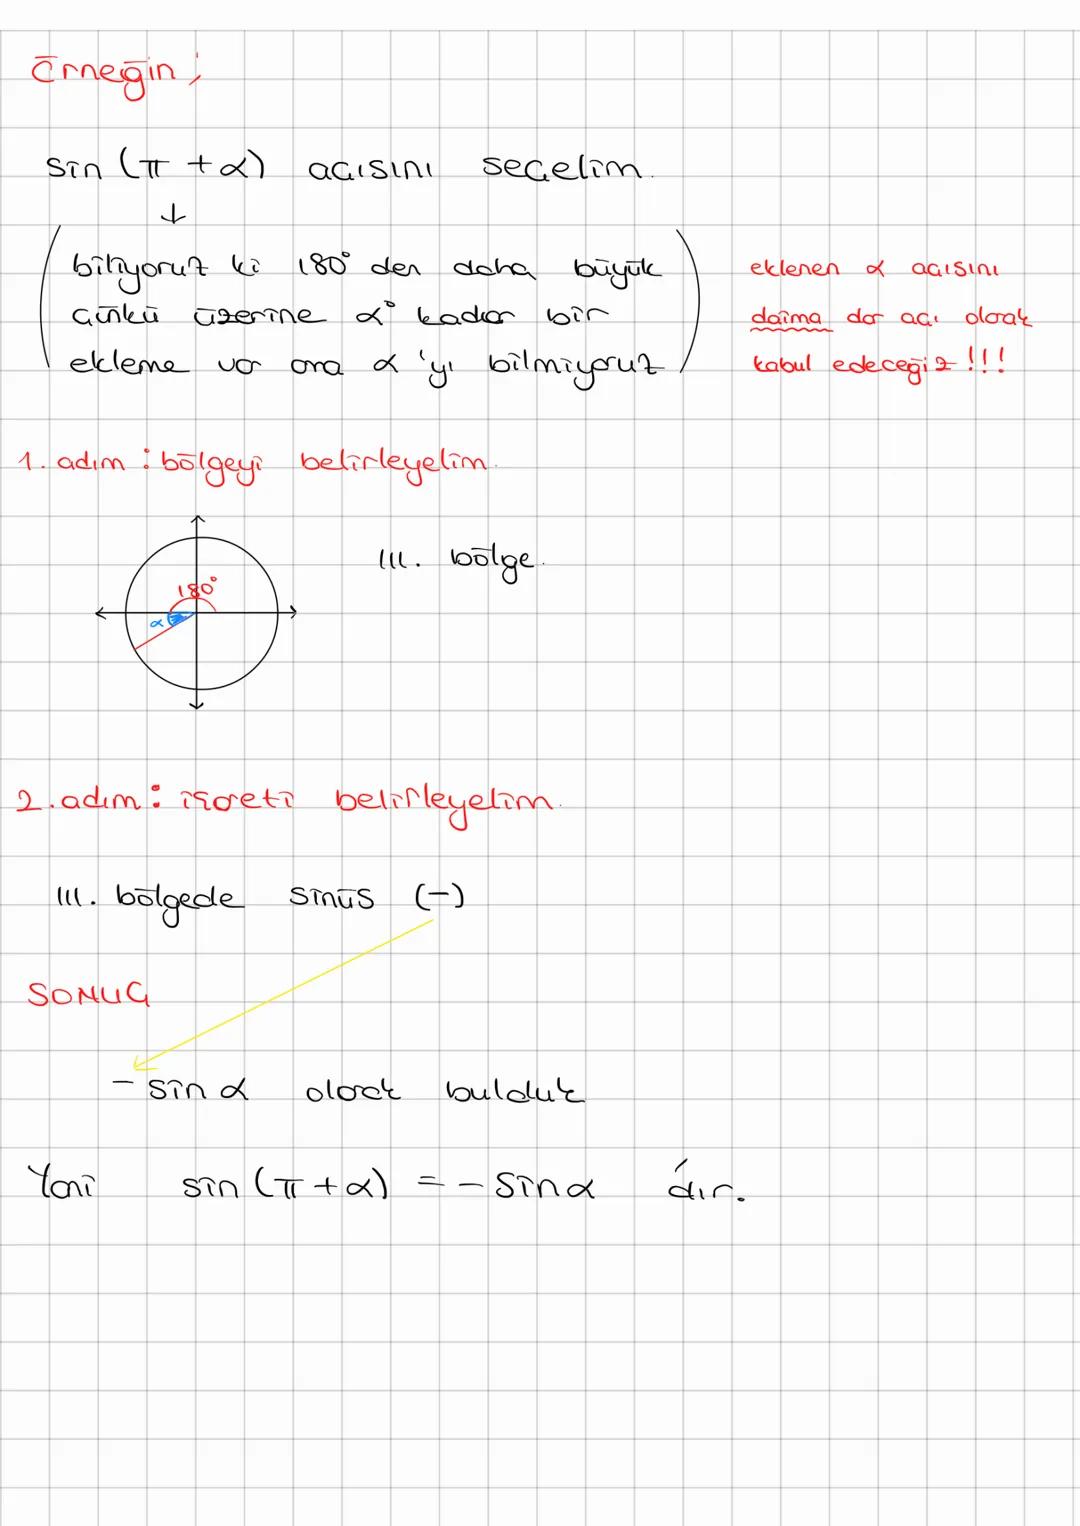 Örneğin ;
sin (π + α) açısını seçelim.
↓
(biliyoruz ki 180° den daha büyük
çünkü üzerine α° kadar bir
ekleme var ama α 'yı bilmiyoruz)
eklenen α açısını
daima dar açı olarak
kabul edeceğiz !!!
1. adım : bölgeyi belirleyelim.
180°
α
III. bölge.
2. adım : işareti belirleyelim.
III. bölgede sinüs (-)
SONUÇ
- sin α olarak bulduk
Yani sin (π + α) = - sin α 'dır.